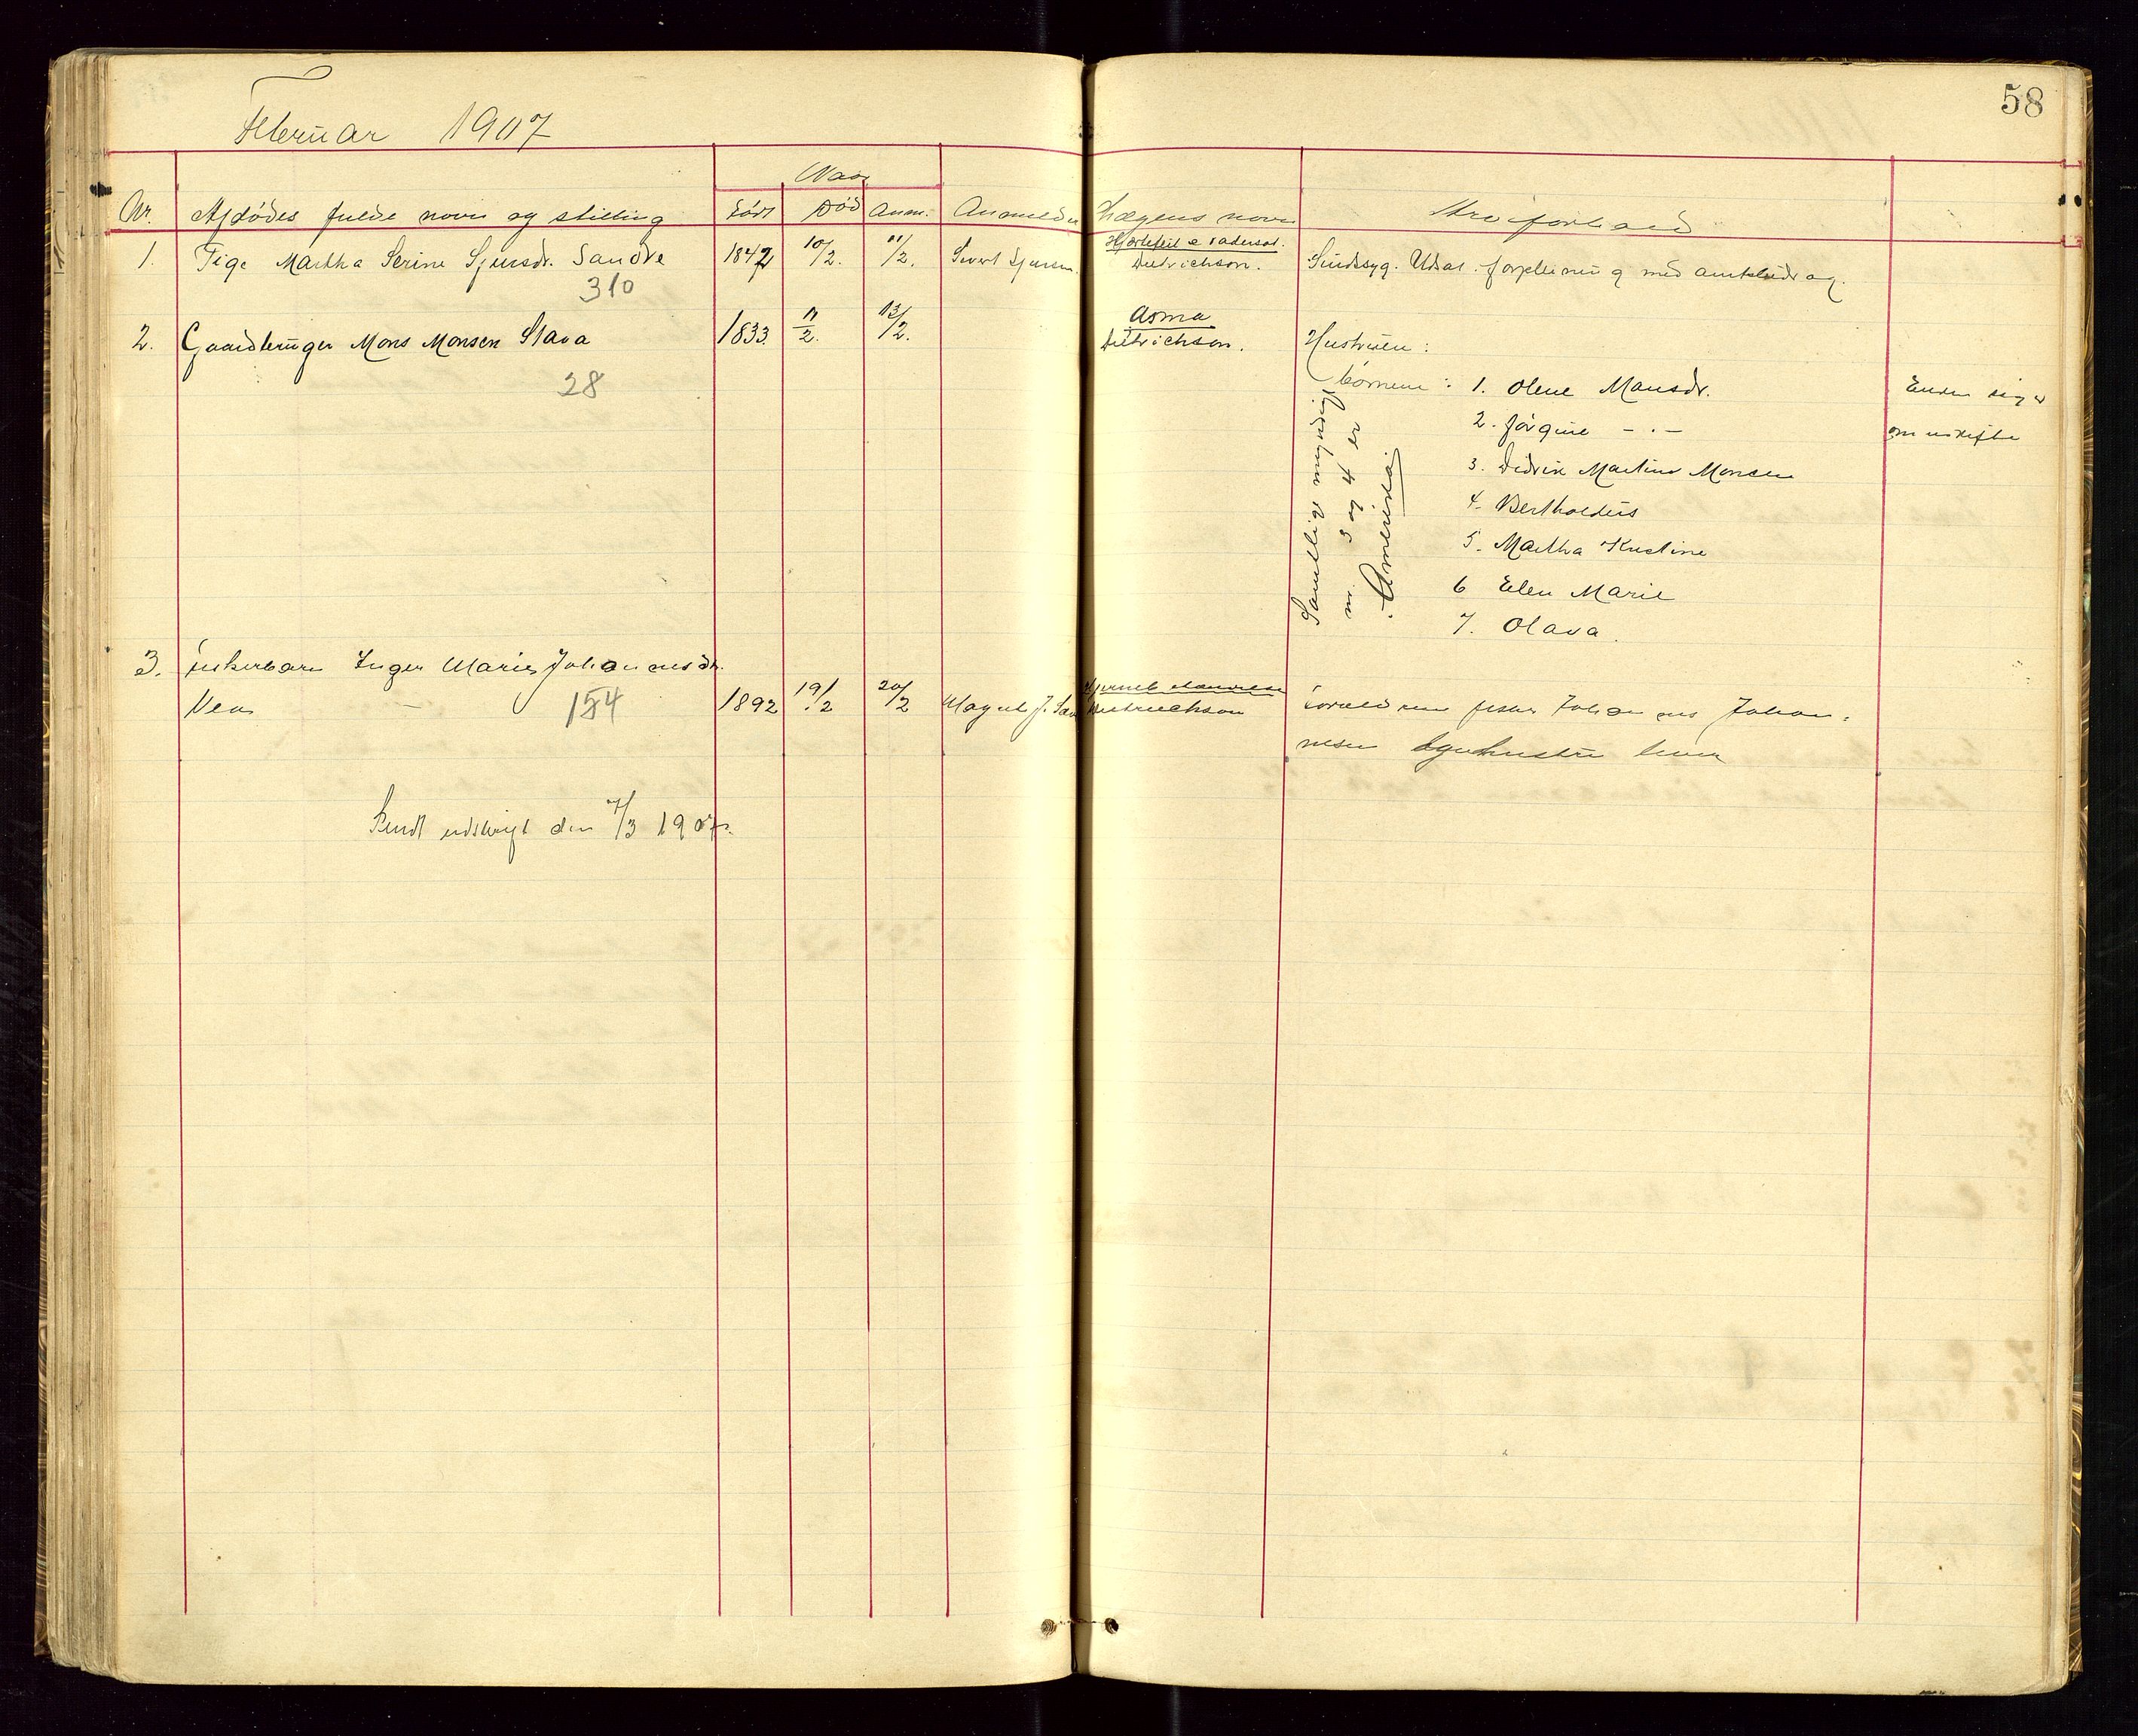 58
Februar 1907
Naar
Nr. Afdødes fulde navn og stilling Født Død Anm. Anmelder Lægens navn Arveforhold
1. Pige Martha Serine Sjursdr. Sandve 1842 10/2. 11/2. Sivert Sjursen. Hjertefeil e
Dietrichson. Sindssyg. Udsat. forpleining med amtsbidrag.
310
2. Gaardbruger Mons Monsen Stava 1833. 11/2. 13/2. Asma
Dietrichson. Hustruen:
28
Børnene: 1. Olene Monsdr.
2. Jørgine - . -
3. Didrik Martins Monsen
4. Bertholdus
5. Martha Kristine
6 Elen Marie
7. Olava.
Samtlige myndige
nr. 3 og 4 er
i Amerika.
Enken sidder
om uskifte
3. Fiskerbarn Inger Marie Johannesdr.
Vea - 154 1892 19/2 20/2 Magnil J. Dietrichson Forældrene fisker Johannes Johan-
nesen og hustru lever
Sendt udskrift den 7/3 1907.